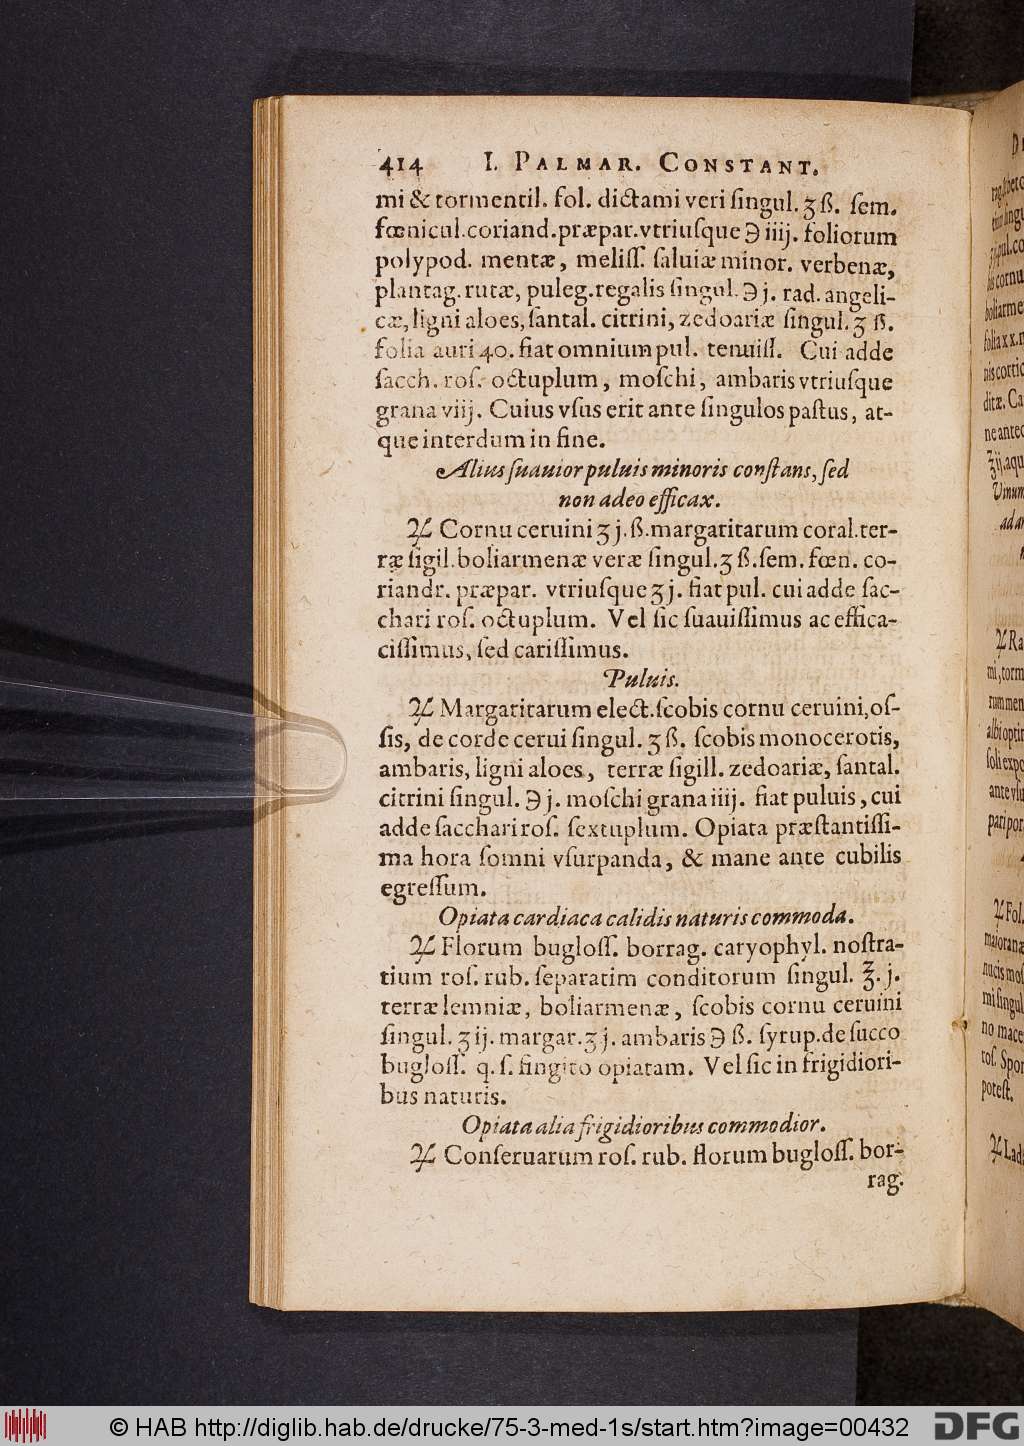 414 I. PALMAR. CONSTANT.
mi & tormentil. fol. dictami veri ſingul. ʒ ß. ſem.
fœnicul.coriand.præpar.vtriuſque ℈ iiij. foliorum
polypod. mentæ, meliſſ. ſaluiæ minor. verbenæ,
plantag. rutæ, puleg.regalis ſingul. ℈ j. rad. angeli-
cæ, ligni aloes, ſantal. citrini, zedoariæ ſingul. ʒ ß.
folia auri 40. fiat omnium pul. tenuiſſ. Cui adde
ſacch. roſ. octuplum, moſchi, ambaris vtriuſque
grana viij. Cuius vſus erit ante ſingulos paſtus, at-
que interdum in fine.
Alius ſuauior puluis minoris conſtans, ſed
non adeo efficax.
℞ Cornu ceruini ʒ j. ß. margaritarum coral. ter-
ræ ſigil. boliarmenæ veræ ſingul. ʒ ß. ſem. fœn. co-
riandr. præpar. vtriuſque ʒ j. fiat pul. cui adde ſac-
chari roſ. octuplum. Vel ſic ſuauiſſimus ac effica-
ciſſimus, ſed cariſſimus.
Puluis.
℞ Margaritarum elect. ſcobis cornu ceruini, oſ-
ſis, de corde cerui ſingul. ʒ ß. ſcobis monocerotis,
ambaris, ligni aloes, terræ ſigill. zedoariæ, ſantal.
citrini ſingul. ℈ j. moſchi grana iiij. fiat puluis, cui
adde ſacchari roſ. ſextuplum. Opiata præſtantiſſi-
ma hora ſomni vſurpanda, & mane ante cubilis
egreſſum.
Opiata cardiaca calidis naturis commoda.
℞ Florum bugloſſ. borrag. caryophyl. noſtra-
tium roſ. rub. ſeparatim conditorum ſingul. ℥. j.
terræ lemniæ, boliarmenæ, ſcobis cornu ceruini
ſingul. ʒ ij. margar. ʒ j. ambaris ℈ ß. ſyrup. de ſucco
bugloſſ. q. ſ. fingito opiatam. Vel ſic in frigidiori-
bus naturis.
Opiata alia frigidioribus commodior.
℞ Conſeruarum roſ. rub. florum bugloſſ. bor-
rag.
© HAB http://diglib.hab.de/drucke/75-3-med-1s/start.htm?image=00432 DFG